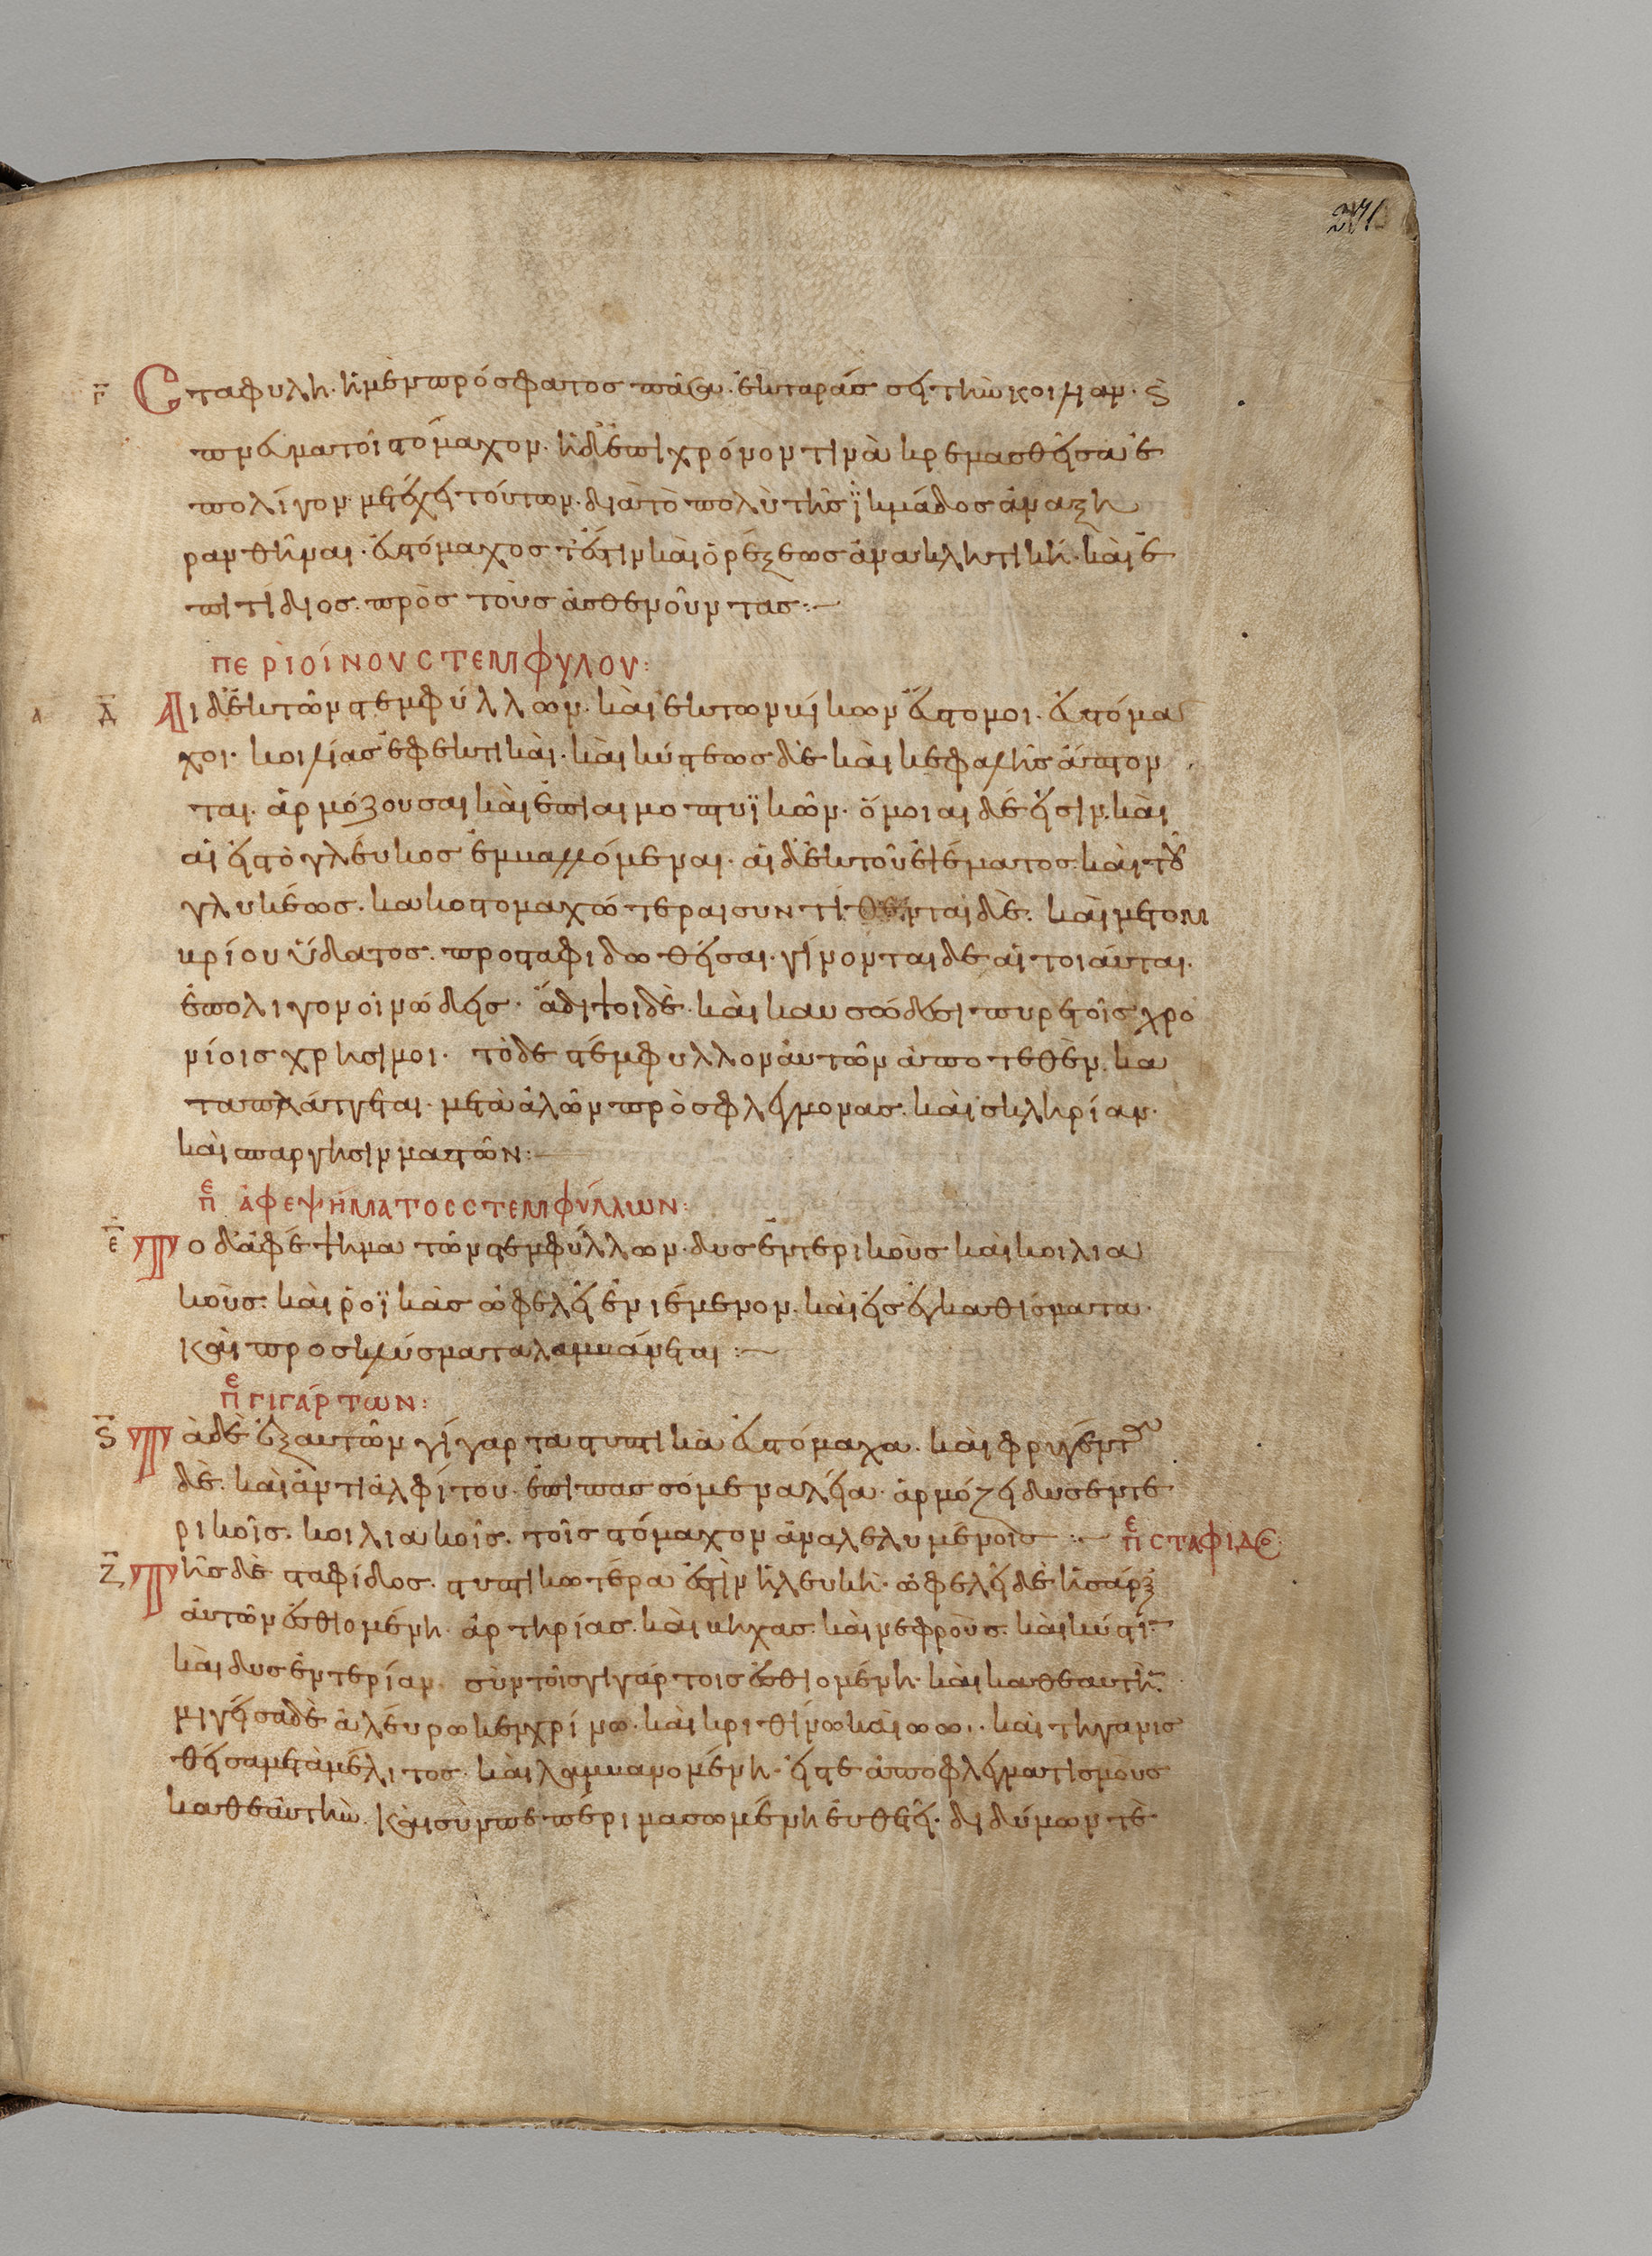 271
γ Σταφυλὴ· ἡ μὲν πρόσφατος πᾶσα· ἐκταράσσει τὴν κοιλίαν· ϗ
πνευματοῖ στόμαχον. ἡ δὲ ἐπὶ χρόνον τινὰ κρεμασθεῖσα ἐ
π᾽ ὀλίγον μετέχει τούτων. διὰ τὸ πολὺ τῆς ἰκμάδος ἀναξη
ρανθῆναι. εὐστόμαχος τέ ἐστιν καὶ ὀρέξεως ἀνακλητική. καὶ ἐ
πιτίδιος. πρὸς τοὺς ἀσθενοῦντας:
ΠΕΡΙ ΟΙΝΟΥ ΣΤΕΜΦΥΛΟΥ:
δ Αἱ δὲ ἐκ τῶν στεμφύλλων. καὶ ἐκ τῶν βίκων εὔστομοι. εὐστόμα
χοι. κοιλίας ἐφεκτικαὶ. καὶ κύστεως δὲ καὶ κεφαλῆς ἅπτον
ται. ἁρμόζουσαι καὶ ἐπὶ αἱμοπτυϊκῶν. ὅμοιαι δέ εἰσιν. καὶ
αἱ εἰς τὸ γλεῦκος ἐμβαλλόμεναι. αἱ δὲ ἐκ τοῦ ἑψέματος καὶ τοῦ
γλυκέως. κακοστομαχώτεραι συντίθενται δὲ. καὶ μετ᾽ ὀμ
βρίου ὕδατος. προσταφιδωθεῖσαι. γίνονται δὲ αἱ τοιαῦται.
ἐπ᾽ ὀλίγον οἰνώδεις. ἄδιψοι δὲ. καὶ καυσώδεσι πυρετοῖς χρο
νίοις χρήσιμοι. τὸ δὲ στέμφυλλον αὐτῶν ἀποτεθὲν. κα
ταπλάσσεται. μετὰ ἁλῶν πρὸς φλεγμονας. καὶ σκληρίαν.
καὶ σπαργησιν μαστῶν:
πε ΑΦΕΨΗΜΑΤΟΣ ΣΤΕΜΦΥΛΛΩΝ:
ε Τὸ δ᾽ ἀφέψημα τῶν στεμφύλλων. δυσεντερικοὺς καὶ κοιλια
κοὺς. καὶ ῥοϊκὰς ὠφελεῖ ἐνιέμενον. καὶ εἰς ἐγκαθίσματα.
καὶ προσκλύσματα λαμβάνεται:
πε ΓΙΓΑΡΤΩΝ:
ϛ Τὰ δὲ ἐξ αὐτῶν γίγαρτα στυπτικὰ εὐστόμαχα. καὶ φρυγέντα
δὲ. καὶ ἀντὶ ἀλφίτου ἐπιπασσόμενα λεῖα. ἁρμόζει δυσεντε
ρικοῖς. κοιλιακοῖς. τοῖς στόμαχον ἀναλελυμένοις : πε ΣΤΑΦΙΔΕ
ζ Τῆς δὲ σταφίδος. στυπτικωτέρα ἐστὶν ἡ λευκὴ. ὠφελεῖ δὲ ἡ σάρξ
αὐτῶν ἐσθιομένη. ἀρτηρίας. καὶ βηχας. καὶ νεφροὺς. καὶ κύστι
καὶ δυσεντερίαν. σὺν τοῖς γιγάρτοις ἐσθιομένη. καὶ καθ᾽ ἑαυτὴν
μιγεῖσα δὲ ἀλεύρω κεγχρίνω. καὶ κριθίνω καὶ ωω.. καὶ τηγανισ
θεῖσα μετὰ μέλιτος. καὶ λαμβανομένη. εἴς τε ἀποφλεγματισμοὺς
καθ᾽ ἑαυτὴν. καὶ σὺν πεπέρι μασωμένη εὐθετεῖ. διδύμων τὲ